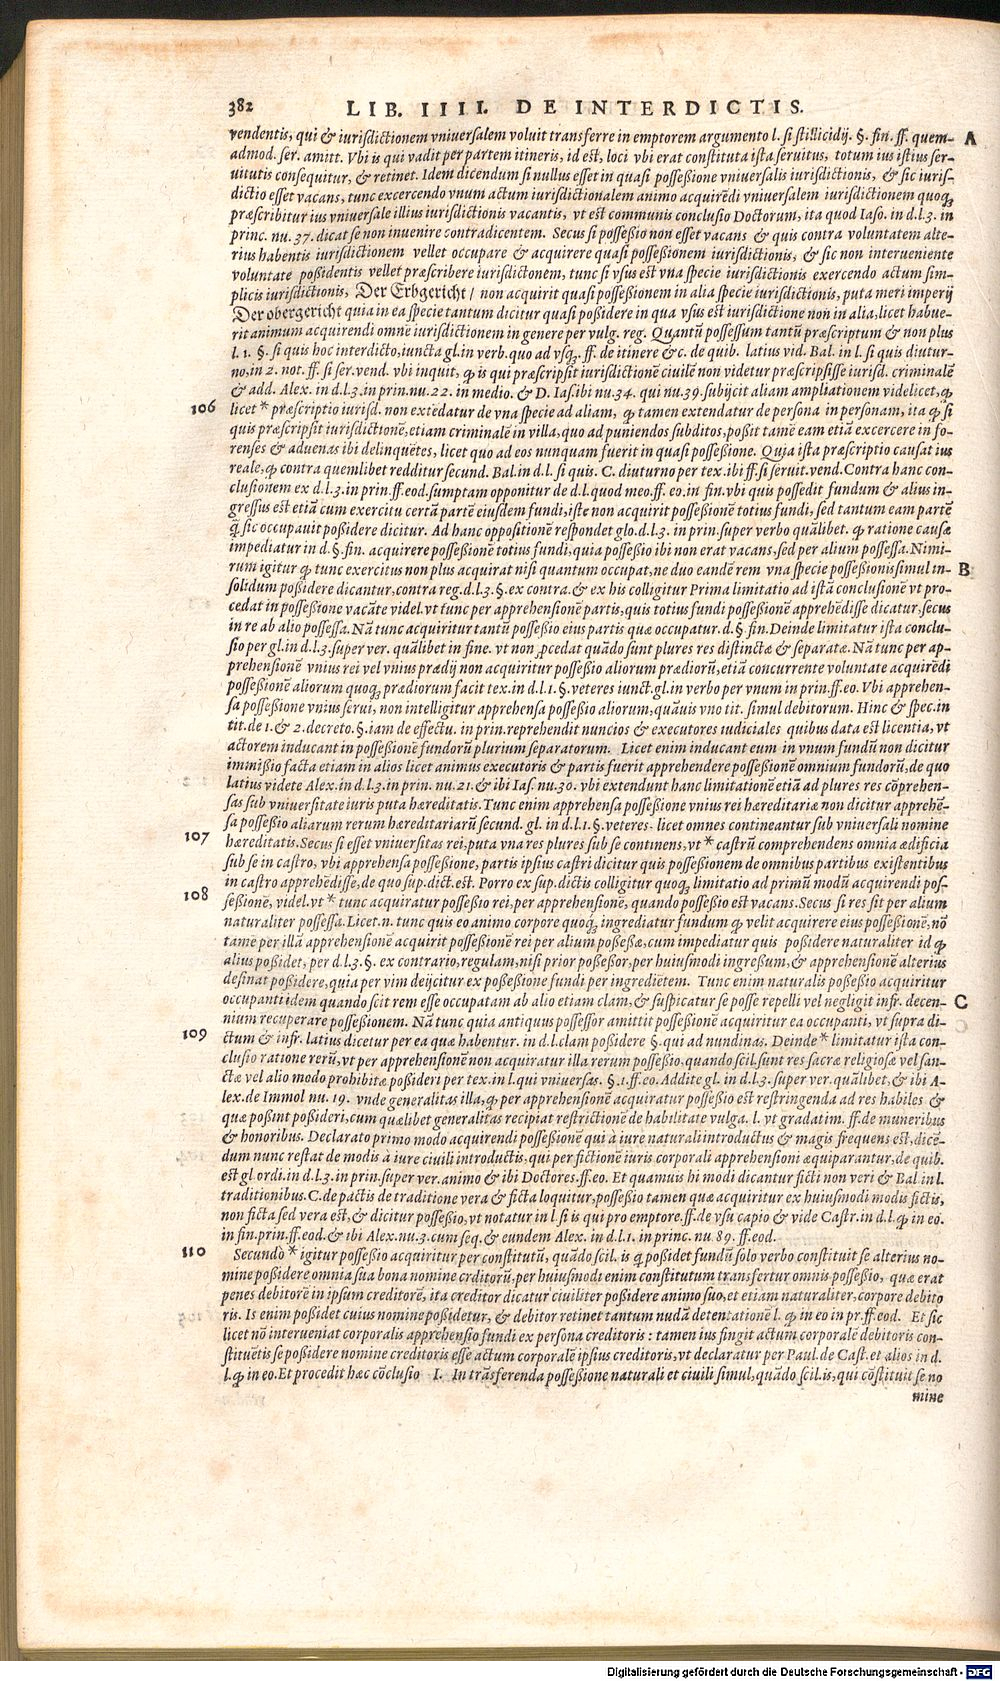 382 LIB. IIII. DE INTERDICTIS.
vendentis, qui & iurisdictionem vniuersalem voluit transferre in emptorem argumento l. si stillicidij. §. fin. ff. quem- A
admod. ser. amitt. Vbi is qui vadit per partem itineris, id est, loci vbi erat constituta ista seruitus, totum ius istius ser-
uitutis consequitur, & retinet. Idem dicendum si nullus esset in quasi possessione vniuersalis iurisdictionis, & sic iuris-
dictio esset vacans, tunc excercendo vnum actum iurisdictionalem animo acquirēdi vniuersalem iurisdictionem quoq;
præscribitur ius vniuersale illius iurisdictionis vacantis, vt est communis conclusio Doctorum, ita quod Iaso. in d.l.3. in
princ. nu. 37. dicat se non inuenire contradicentem. Secus si possessio non esset vacans & quis contra voluntatem alte-
rius habentis iurisdictionem vellet occupare & acquirere quasi possessionem iurisdictionis, & sic non interueniente
voluntate possidentis vellet præscribere iurisdictonem, tunc si vsus est vna specie iurisdictionis exercendo actum sim-
plicis iurisdictionis, Der Erbgericht / non acquirit quasi possessionem in alia specie iurisdictionis, puta meri imperij
Der obergericht quia in ea specie tantum dicitur quasi possidere in qua vsus est iurisdictione non in alia, licet habue-
rit animum acquirendi omnē iurisdictionem in genere per vulg. reg. Quantū possessum tantū præscriptum & non plus
l. 1. §. si quis hoc interdicto, iuncta gl. in verb. quo ad vsq;. ff. de itinere & c. de quib. latius vid. Bal. in l. si quis diutur-
no, in 2. not. ff. si ser. vend. vbi inquit, ꝙ is qui præscripsit iurisdictionē ciuilē non videtur præscripsisse iurisd. criminalē
& add. Alex. in d.l.3. in prin. nu. 22. in medio. & D. Ias. ibi nu. 34. qui nu. 39. subijcit aliam ampliationem videlicet, ꝙ
106 licet * præscriptio iurisd. non extēdatur de vna specie ad aliam, ꝙ tamen extendatur de persona in personam, ita ꝙ si
quis præscripsit iurisdictionē, etiam criminalē in villa, quo ad puniendos subditos, possit tamē eam etiā excercere in fo-
renses & aduenas ibi delinquētes, licet quo ad eos nunquam fuerit in quasi possessione. Quia ista præscriptio causat ius
reale, ꝙ contra quemlibet redditur secund. Bal. in d.l. si quis. C. diuturno per tex. ibi ff. si seruit. vend. Contra hanc con-
clusionem ex d.l.3. in prin. ff. eod. sumptam opponitur de d.l. quod meo. ff. eo. in fin. vbi quis possedit fundum & alius in-
gressus est etiā cum exercitu certā partē eiusdem fundi, iste non acquirit possessionē totius fundi, sed tantum eam partē
q̄ sic occupauit possidere dicitur. Ad hanc oppositionē respondet glo. d.l.3. in prin. super verbo quālibet. ꝙ ratione causæ
impediatur in d. §. fin. acquirere possessionē totius fundi, quia possessio ibi non erat vacans, sed per alium possessa. Nimi-
rum igitur ꝙ tunc exercitus non plus acquirat nisi quantum occupat, ne duo eandē rem vna specie possessionis simul in- B
solidum possidere dicantur, contra reg. d.l.3. §. ex contra. & ex his colligitur Prima limitatio ad istā conclusionē vt pro-
cedat in possessione vacāte videl. vt tunc per apprehensionē partis, quis totius fundi possessionē apprehēdisse dicatur, secus
in re ab alio possessa. Nā tunc acquiritur tantū possessio eius partis quæ occupatur. d. §. fin. Deinde limitatur ista conclu-
sio per gl. in d.l.3. super ver. quālibet in fine. vt non ꝓcedat quādo sunt plures res distinctæ & separatæ. Nā tunc per ap-
prehensionē vnius rei vel vnius prædij non acquiritur possessio aliorum prædiorū, etiā concurrente voluntate acquirēdi
possessionē aliorum quoq; prædiorum facit tex. in d.l.1. §. veteres iunct. gl. in verbo per vnum in prin. ff. eo. Vbi apprehen-
sa possessione vnius serui, non intelligitur apprehensa possessio aliorum, quāuis vno tit. simul debitorum. Hinc & spec. in
tit. de 1. & 2. decreto. §. iam de effectu. in prin. reprehendit nuncios & executores iudiciales quibus data est licentia, vt
actorem inducant in possessionē fundorū plurium separatorum. Licet enim inducant eum in vnum fundū non dicitur
immissio facta etiam in alios licet animus executoris & partis fuerit apprehendere possessionē omnium fundorū, de quo
latius videte Alex. in d.l.3. in prin. nu. 21. & ibi Ias. nu. 30. vbi extendunt hanc limitationē etiā ad plures res cōprehen-
sas sub vniuersitate iuris puta hæreditatis. Tunc enim apprehensa possessione vnius rei hæreditariæ non dicitur apprehē-
sa possessio aliarum rerum hæreditariarū secund. gl. in d.l.1. §. veteres. licet omnes contineantur sub vniuersali nomine
107 hæreditatis. Secus si esset vniuersitas rei, puta vna res plures sub se continens, vt * castrū comprehendens omnia ædificia
sub se in castro, vbi apprehensa possessione, partis ipsius castri dicitur quis possessionem de omnibus partibus existentibus
in castro apprehēdisse, de quo sup. dict. est. Porro ex sup. dictis colligitur quoq; limitatio ad primū modū acquirendi pos-
108 sessionē, videl. vt * tunc acquiratur possessio rei, per apprehensionē, quando possessio est vacans. Secus si res sit per alium
naturaliter possessa. Licet. n. tunc quis eo animo corpore quoq; ingrediatur fundum ꝙ velit acquirere eius possessionē, nō
tamē per illā apprehensionē acquirit possessionē rei per alium possessæ, cum impediatur quis possidere naturaliter id ꝙ
alius possidet, per d.l.3. §. ex contrario, regulam, nisi prior possessor, per huiusmodi ingressum, & apprehensionē alterius
desinat possidere, quia per vim deijcitur ex possessione fundi per ingredietem. Tunc enim naturalis possessio acquiritur
occupanti idem quando scit rem esse occupatam ab alio etiam clam, & suspicatur se posse repelli vel negligit infr. decen- C
nium recuperare possessionem. Nā tunc quia antiquus possessor amittit possessionē acquiritur ea occupanti, vt supra di-
109 ctum & infr. latius dicetur per ea quæ habentur. in d.l. clam possidere §. qui ad nundinas. Deinde * limitatur ista con-
clusio ratione rerū, vt per apprehensionē non acquiratur illa rerum possessio, quando scil. sunt res sacræ religiosæ vel san-
ctæ vel alio modo prohibitæ possideri per tex. in l. qui vniuersas. §. 1. ff. eo. Addite gl. in d.l.3. super ver. quālibet, & ibi A-
lex. de Immol nu. 19. vnde generalitas illa, ꝙ per apprehensionē acquiratur possessio est restringenda ad res habiles &
quæ possint possideri, cum quælibet generalitas recipiat restrictionē de habilitate vulga. l. vt gradatim. ff. de muneribus
& honoribus. Declarato primo modo acquirendi possessionē qui à iure naturali introductus & magis frequens est, dicē-
dum nunc restat de modis à iure ciuili introductis, qui per fictionē iuris corporali apprehensioni æquiparantur, de quib.
est gl. ordi. in d.l.3. in prin. super ver. animo & ibi Doctores. ff. eo. Et quamuis hi modi dicantur ficti non veri & Bal. in l.
traditionibus. C. de pactis de traditione vera & ficta loquitur, possessio tamen quæ acquiritur ex huiusmodi modis fictis,
non ficta sed vera est, & dicitur possessio, vt notatur in l. si is qui pro emptore. ff. de vsu capio & vide Castr. in d.l. ꝙ in eo.
in fin. prin. ff. eod. & ibi Alex. nu. 3. cum seq. & eundem Alex. in d.l.1. in princ. nu. 89. ff. eod.
110 Secundò * igitur possessio acquiritur per constitutū, quādo scil. is q̄ possidet fundū solo verbo constituit se alterius no-
mine possidere omnia sua bona nomine crditorū, per huiusmodi enim constitutum transfertur omnis possessio, quæ erat
penes debitorē in ipsum creditorē, ita creditor dicatur ciuiliter possidere animo suo, et etiam naturaliter, corpore debito
ris. Is enim possidet cuius nomine possidetur, & debitor retinet tantum nudā detentationē l. ꝙ in eo in pr. ff. eod. Et sic
licet nō interueniat corporalis apprehensio fundi ex persona creditoris : tamen ius fingit actum corporalē debitoris con-
stituētis se possidere nomine creditoris esse actum corporalē ipsius creditoris, vt declaratur per Paul. de Cast. et alios in d.
l. ꝙ in eo. Et procedit hæc cōclusio I. In trāsferenda possessione naturali et ciuili simul, quādo scil. is, qui cōstituit se no
mine
Digitalisierung gefördert durch die Deutsche Forschungsgemeinschaft - DFG